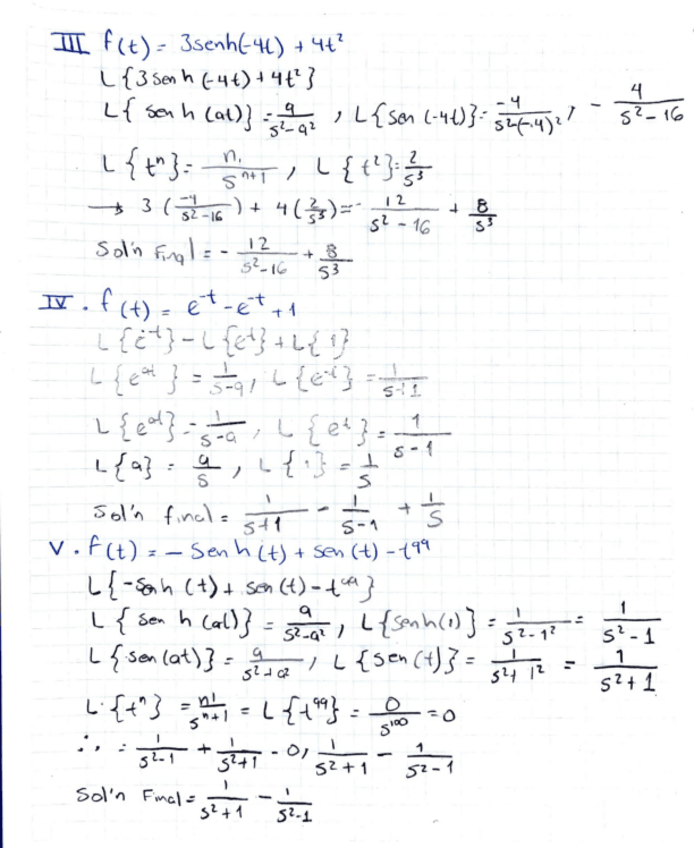 III f(t) = 3senh(-4t) + 4t²
L{3senh(-4t) + 4t²}
L{senh(at)} = a/(s²-a²), L{sen(-4t)} = -4/(s²(-4)²), - 4/(s²-16)
L{tⁿ} = n!/sⁿ⁺¹, L{t²} = 2/s³
→ 3(-4/(s²-16)) + 4(2/s³) = - 12/(s²-16) + 8/s³
Sol'n Final = - 12/(s²-16) + 8/s³
IV. f(t) = e⁻ᵗ - e⁻ᵗ + 1
L{e⁻ᵗ} - L{eᵗ} + L{1}
L{eᵃᵗ} = 1/(s-a), L{e⁻ᵗ} = 1/(s+1)
L{eᵃᵗ} = 1/(s-a), L{eᵗ} = 1/(s-1)
L{a} = a/s, L{1} = 1/s
Sol'n final = 1/(s+1) - 1/(s-1) + 1/s
V. f(t) = - Senh(t) + sen(t) - t⁹⁹
L{-senh(t) + sen(t) - t⁹⁹}
L{senh(at)} = a/(s²-a²), L{senh(1)} = 1/(s²-1²) = 1/(s²-1)
L{sen(at)} = a/(s²+a²), L{sen(t)} = 1/(s²+1²) = 1/(s²+1)
L{tⁿ} = n!/sⁿ⁺¹ = L{t⁹⁹} = 0/s¹⁰⁰ = 0
∴ = 1/(s²-1) + 1/(s²+1) - 0, 1/(s²+1) - 1/(s²-1)
Sol'n Final = 1/(s²+1) - 1/(s²-1)